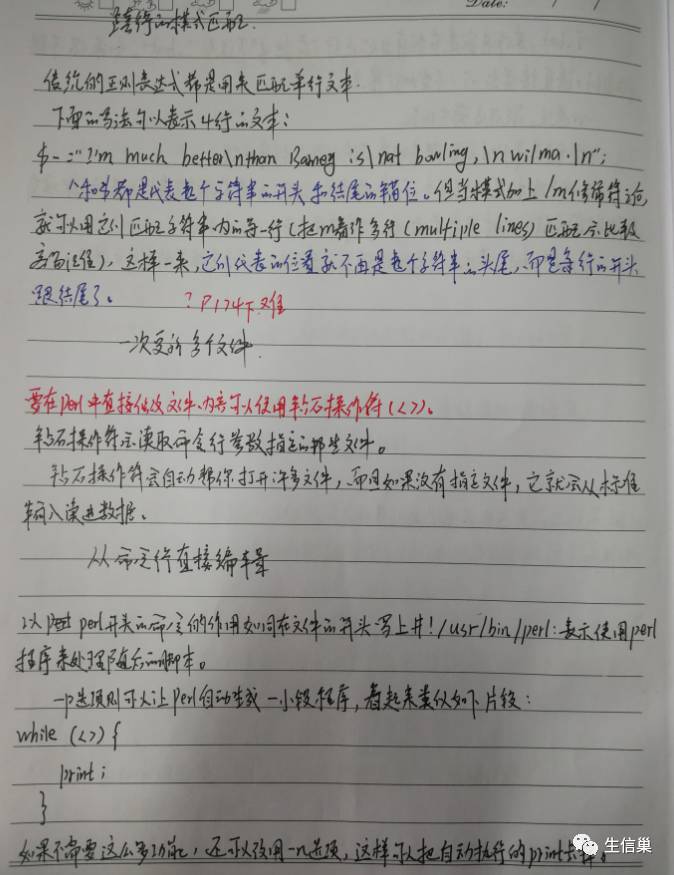 Date:
跨行的模式匹配
传统的正则表达式都是用来匹配单行文本.
下面的写法可以表示4行的文本:
$_ = "I'm much better\nthan Barney is\nat bowling,\nwilma.\n";
^和$都是代表整个字符串的开头和结尾的锚位。但当模式加上/m修饰符之后,
就可以用它们匹配字符串内的每一行(把m看作多行(multiple lines)匹配会比较
容易记住),这样一来,它们代表的位置就不再是整个字符串的头尾,而是每行的开头
跟结尾了。 ?P174下.难
一次更新多个文件.
要在perl中直接修改文件内容可以使用钻石操作符(<>)。
钻石操作符会读取命令行参数指定的那些文件。
钻石操作符会自动帮你打开许多文件,而且如果没有指定文件,它就会从标准
输入读进数据。
从命令行直接编辑
以perl开头的命令的作用如同在文件的开头写上#!/usr/bin/perl:表示使用perl
程序来处理随后的脚本。
-p选项则可以让perl自动生成一小段程序,看起来类似如下片段:
while (<>) {
print;
}
如果不需要这么多功能,还可以改用-n选项,这样可以把自动执行的print去掉。
生信巢